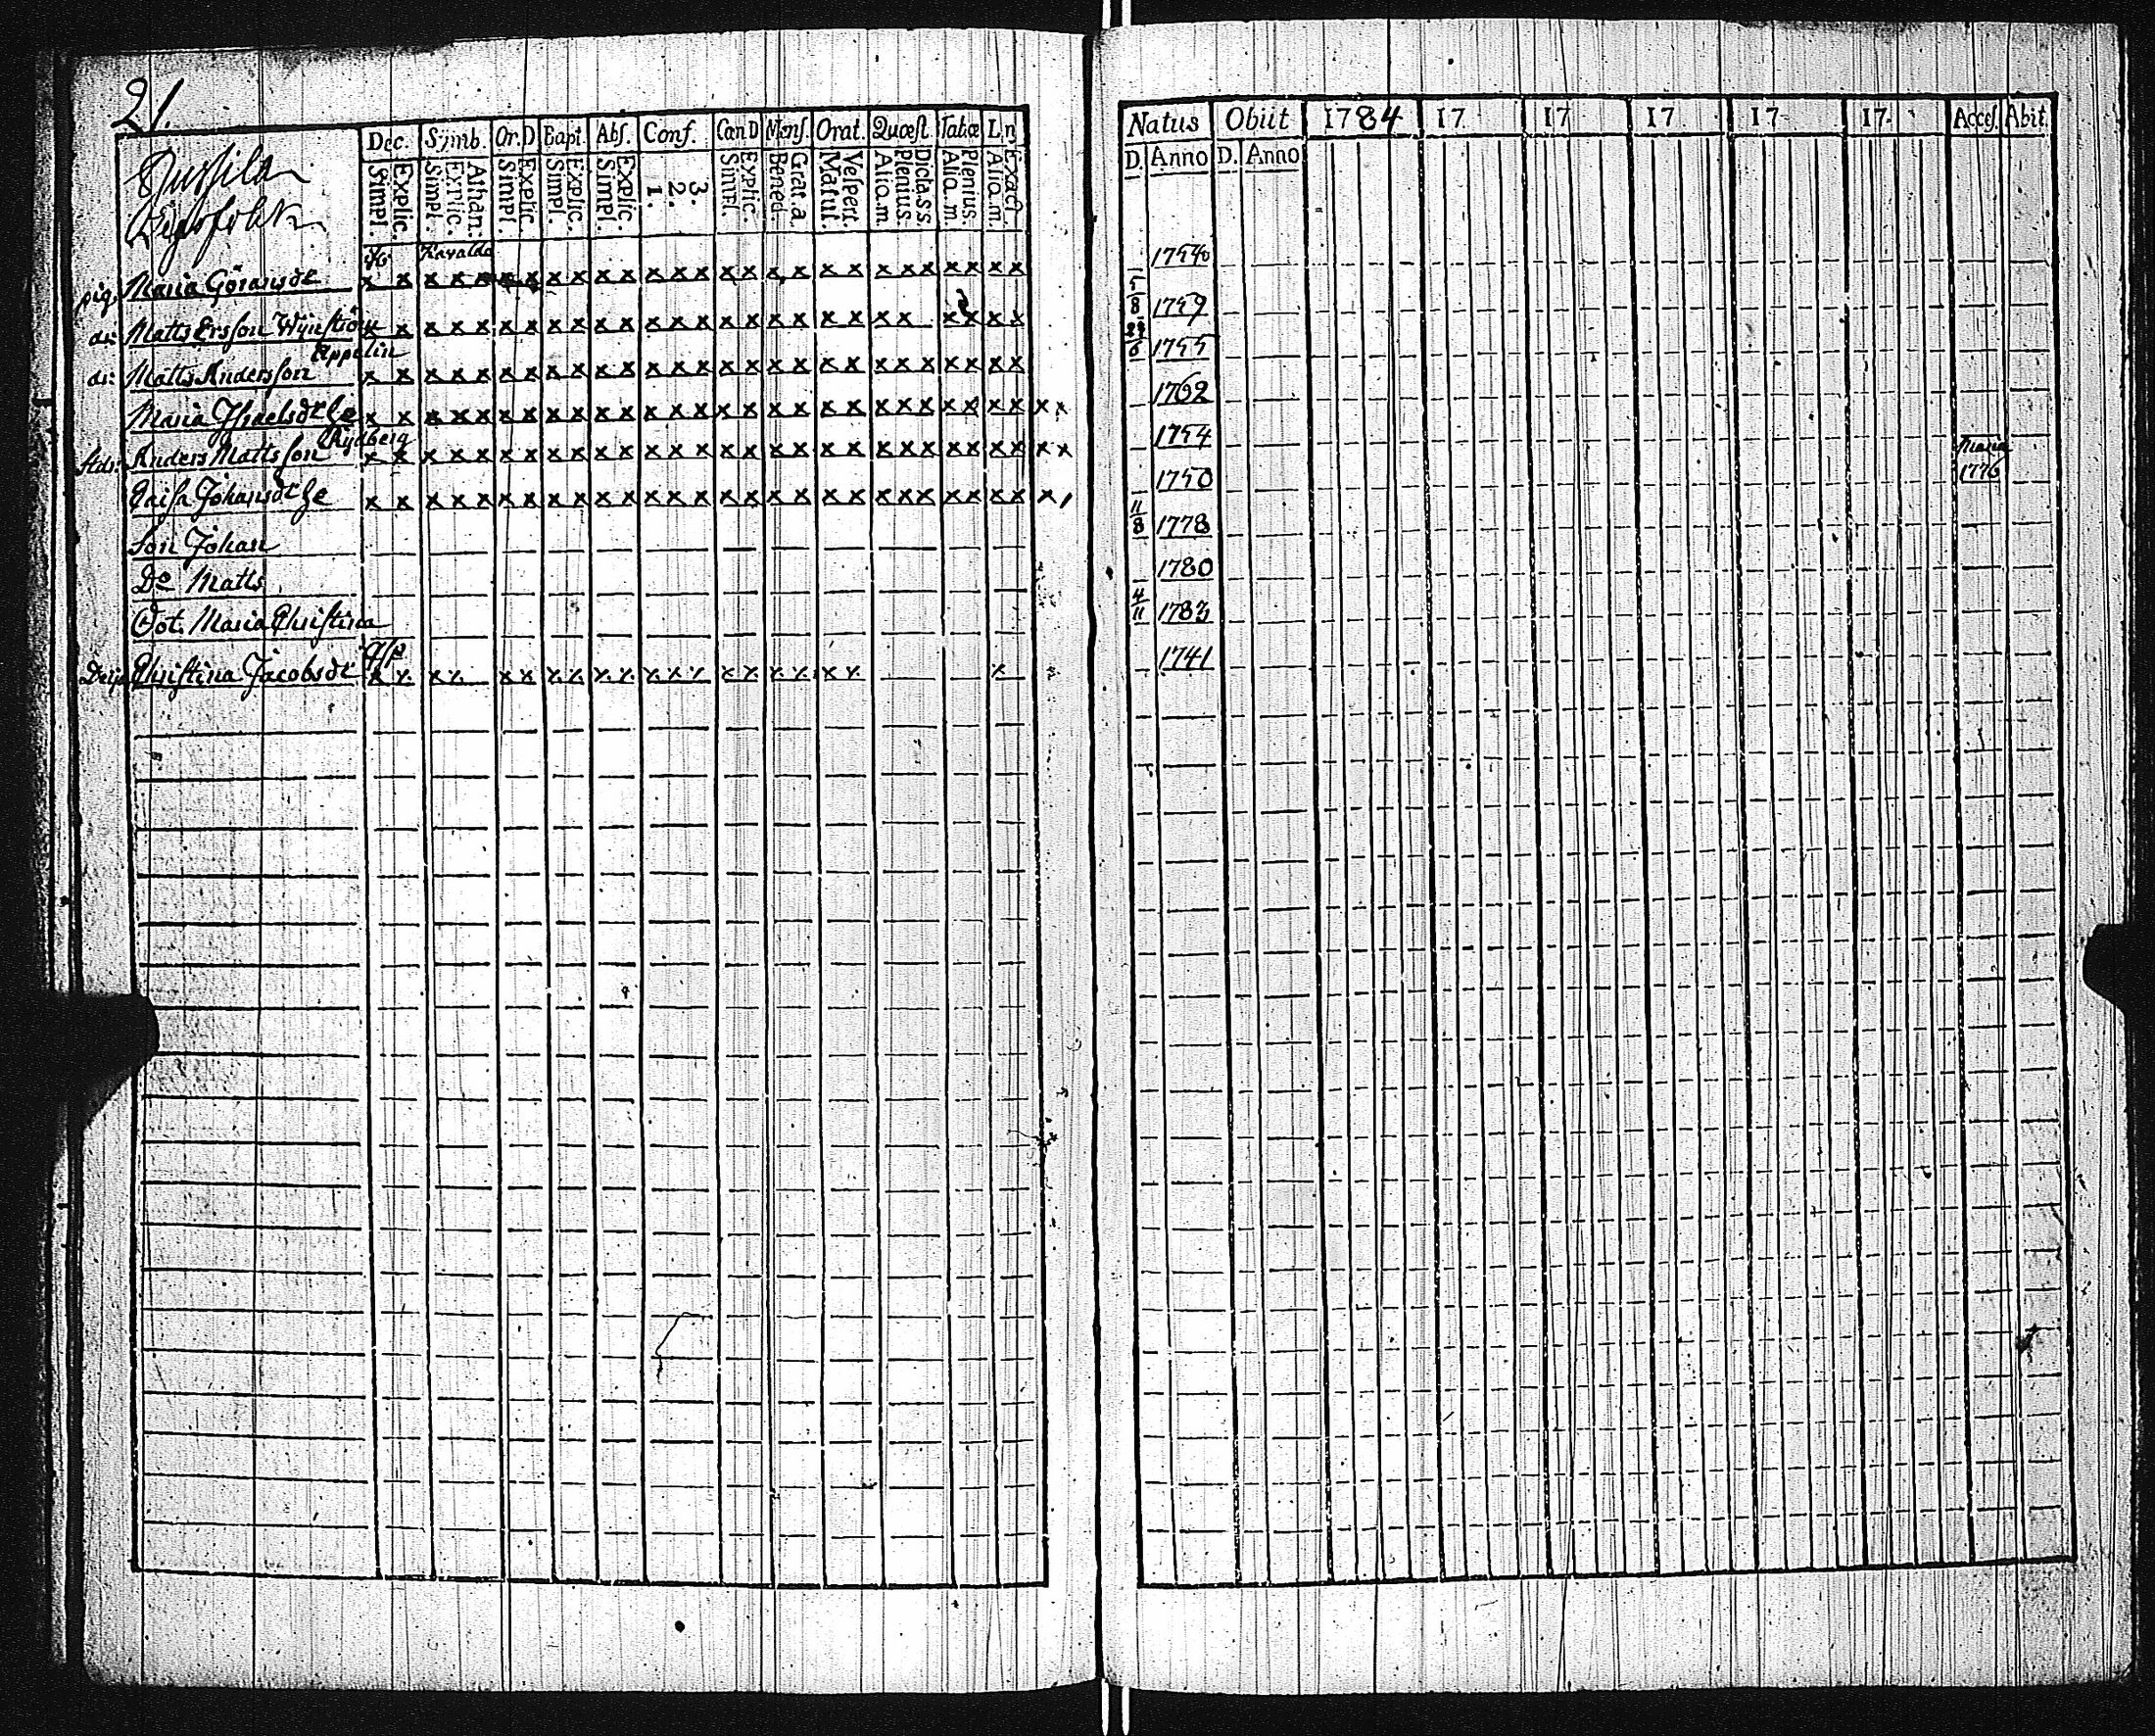 21.
Dec. Symb. Or.D Bapt. Abſ. Conf. Can D Menſ. Orat. Quæſt. Tabæ L.n
Simpl. Explic. Simpl. Explic. Athan. Simpl. Explic. Simpl. Explic. Simpl. Explic. 1. 2. 3. Simpl. Explic. Bened. Grat. a. Matut. Veſpert. Alio.m. Plenius. Dicta.s.s. Alio.m. Plenius. Alio.m. Exact
Kavalda
pig. Maria Göransdr x x x x x x x x x x x x x x x x x x x x x x x x x x
di: Matts Ersſon Wijnſtröm x x x x x x x x x x x x x x x x x x x x x x x x x
Appelin
di: Matts Andersſon x x x x x x x x x x x x x x x x x x x x x x x x x x
Maria Iſraelsdr x x x x x x x x x x x x x x x x x x x x x x x x x x x x
Rydberg
Anders Mattsſon x x x x x x x x x x x x x x x x x x x x x x x x x x x x
Caiſa Johansdr x x x x x x x x x x x x x x x x x x x x x x x x x x x
Son Johan
Do Matts
Dot. Maria Chriſtina
Chriſtina Jacobsdr x x x x x x x x x x x x x x x x x x x x
Natus Obiit 1784 17 17 17 17 17 Acceſ. Abit.
D. Anno D. Anno
1754
5/8 1759
1755
1762
1754
1776
1750
11/8 1778
1780
4/11 1783
1741